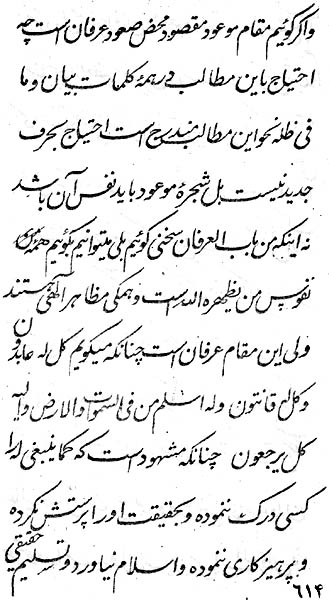 واگر گوئیم مقام موعود مقصود محض صعود عرفان است چه
احتیاج باین مطالب در همهٔ کلمات بیان و ما
فی ظله نحو این مطالب مندرج است احتیاج بحرف
جدید نیست بل شجرهٔ موعود باید نفس آن باشد
نه اینکه من باب العرفان سخنی گوئیم بلی میتوانیم بگوئیم همهٔ
نفوس من یظهره الله است و همگی مظاهر الهی هستند
ولی این مقام عرفان است چنانکه میگویم کل له عابدون
و کل له قانتون وله اسلم من فی السموات والارض والیه
کل یرجعون چنانکه مشهود است که کما ینبغی له را
کسی درک ننموده و بحقیقت او را پرستش نکرده
و پرهیزکاری ننموده و اسلام نیاورد و تسلیم حقیقی
۶۱۴